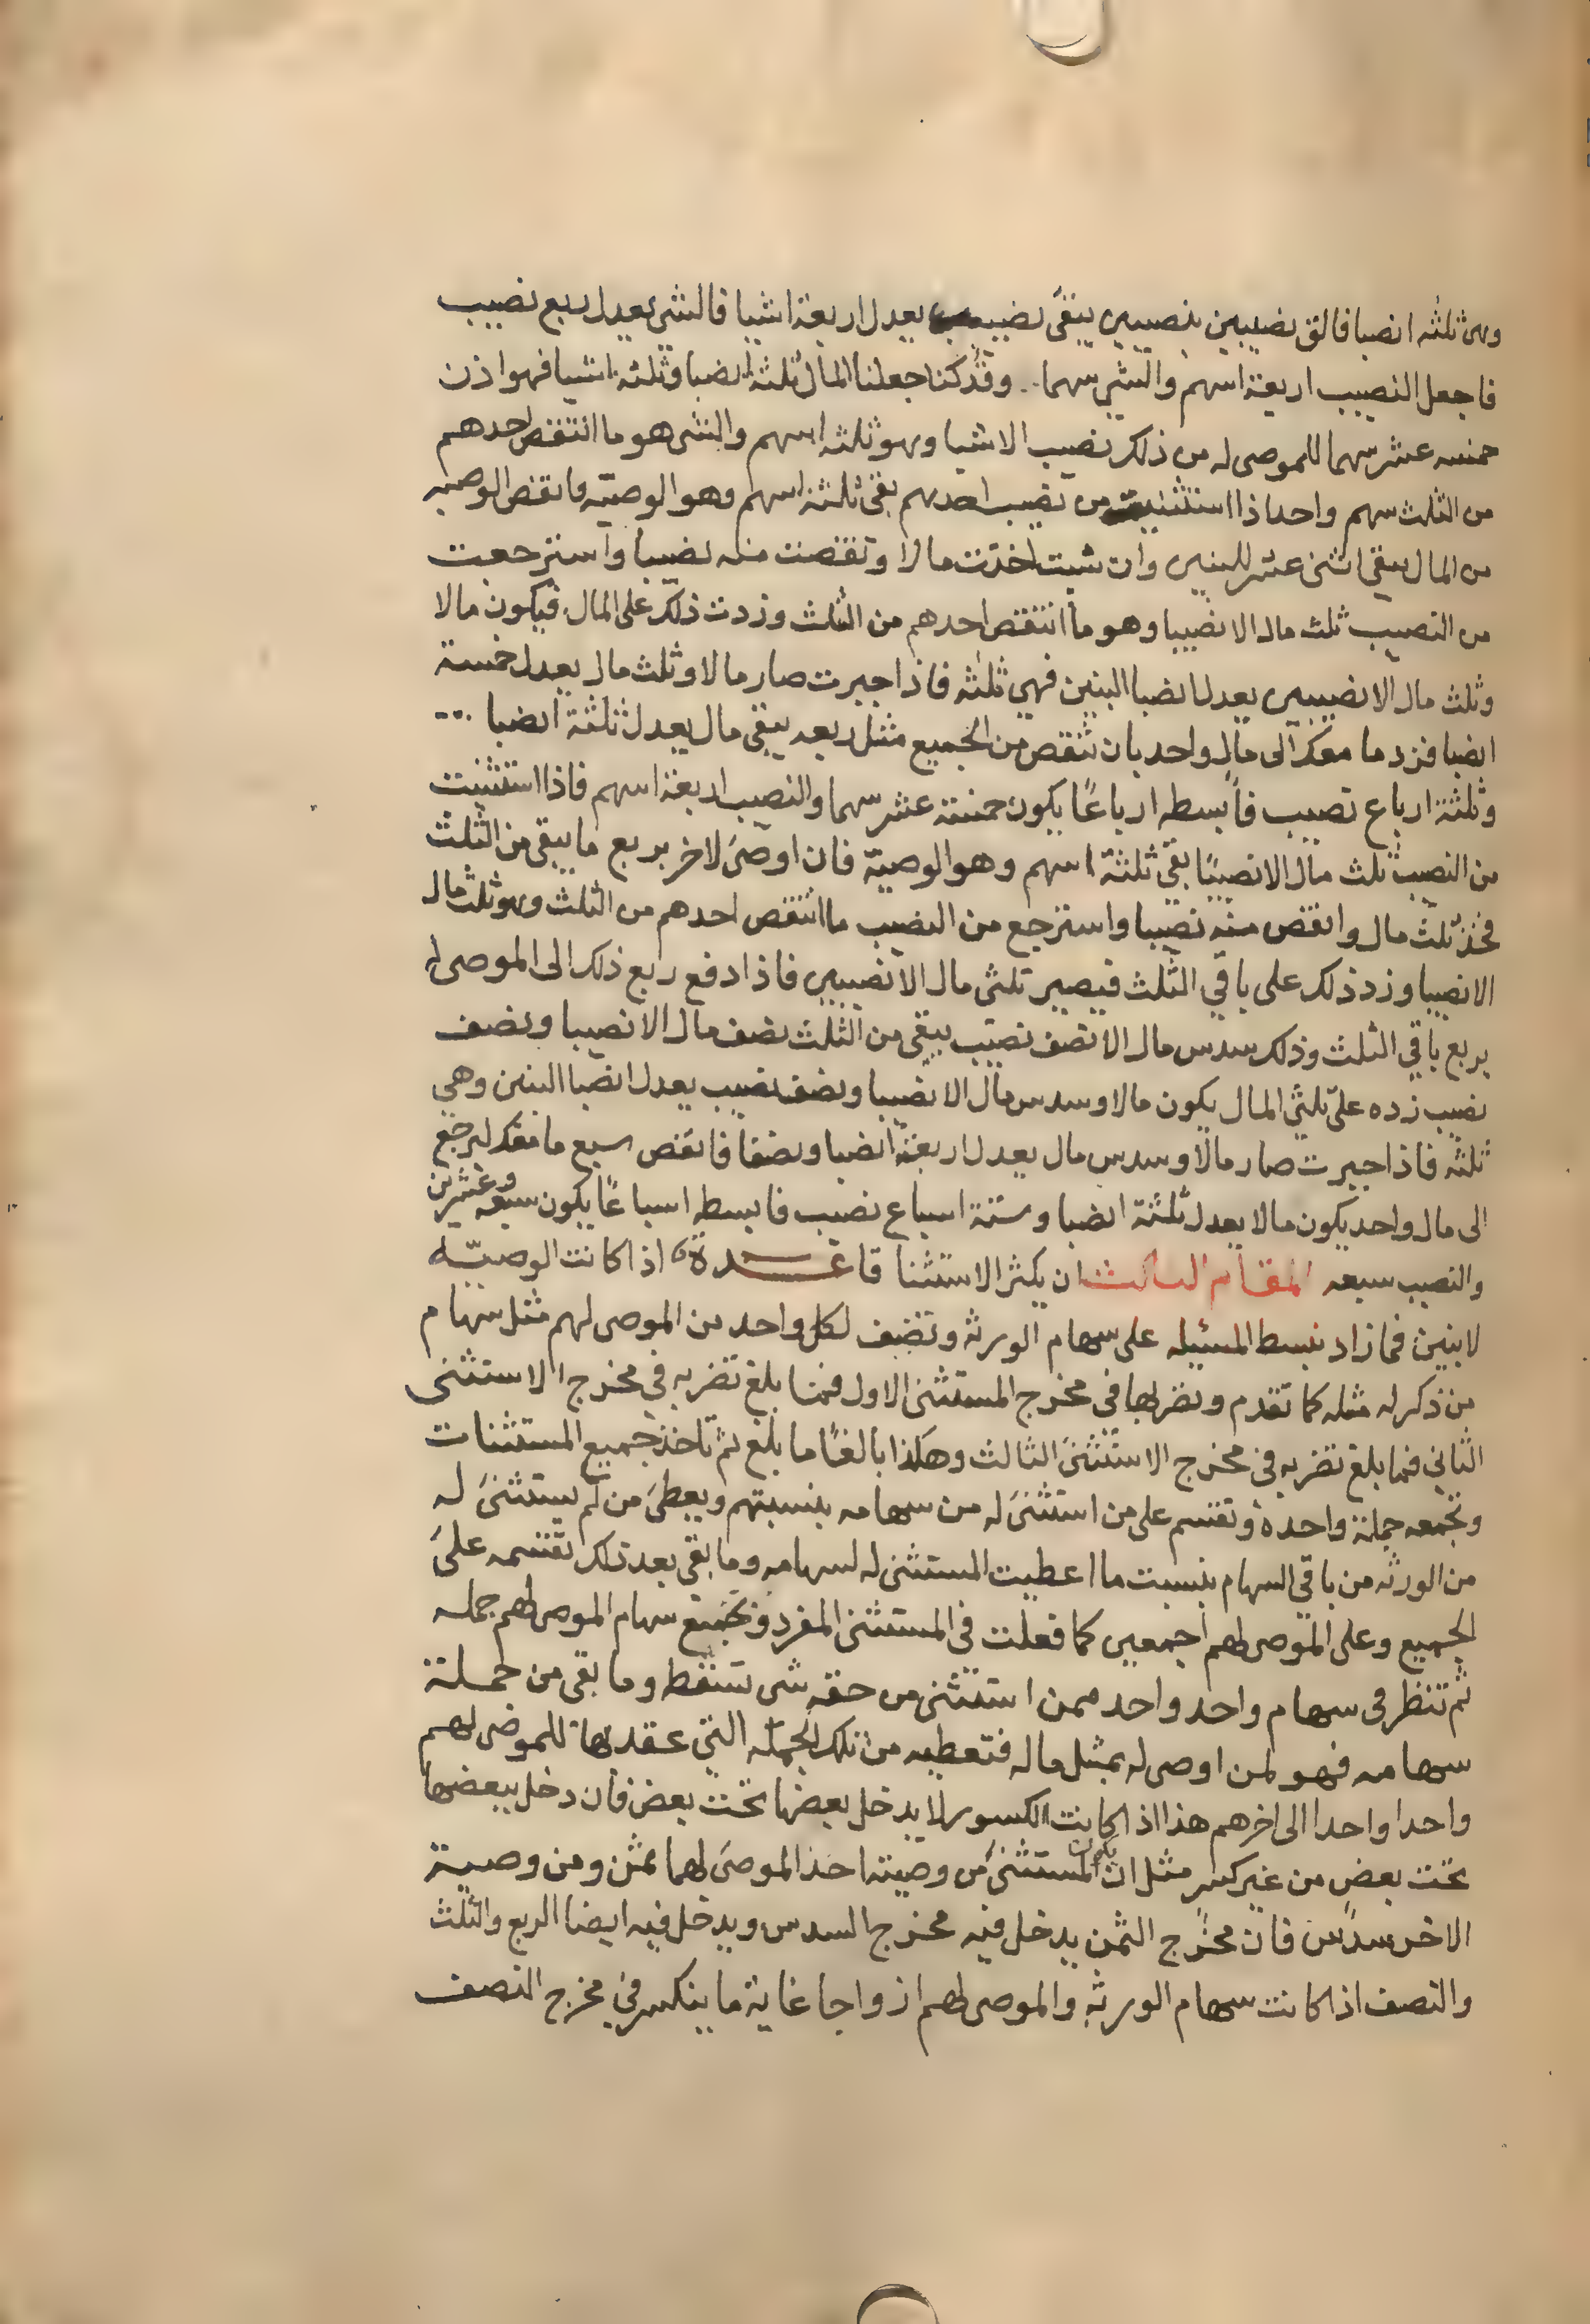 وهى ثلثه انصبا فالق نصيبين بنصيبين يبقى نصيب يعدل اربعة اشيا فالشى يعدل ربع نصيب
فاجعل النصيب اربعة اسهم والشى سهما .. وقد كنا جعلنا المال ثلثة انصبا وثلثه اشيا فهو اذن
خمسه عشر سهما للموصى له من ذلك نصيب الا شيا وهو ثلثه اسهم والشى هو ما انتقص احدهم
من الثلث سهم واحد اذا استثنيت من نصيب احدهم بقى ثلثة اسهم وهو الوصيّه وانقص الوصيه
من المال يبقى اثنى عشر للبنين وان شيت اخذت مالا ونقصت منه نصيبا واسترجعت
من النصيب ثلث مال الا نصيبا وهو ما انتقص احدهم من الثلث وزدت ذلك على المال فيكون مالا
وثلث مال الا نصيبين يعدل انصبا البنين فهي ثلثه فاذا جبرت صار مالا وثلث مال يعدل خمسة
انصبا فزد ما معك الى مال واحد بان تنقص من الجميع مثل ربعه يبقى مال يعدل ثلثة انصبا ...
وثلثة ارباع نصيب فابسطه ارباعًا يكون خمسة عشر سهما والنصيب اربعة اسهم فاذا استثنيت
من النصيب ثلث مال الا نصيبًا بقى ثلثة اسهم وهو الوصية فان اوصى لاخر بربع ما يبقى من الثلث
فخذ ثلث مال وانقص منه نصيبا واسترجع من النصيب ما انتقص احدهم من الثلث وهو ثلث مال
الا نصيبا وزد ذلك على باقي الثلث فيصير ثلثى مال الا نصيبين فاذا دفع ربع ذلك الى الموصى له
بربع باقي الثلث وذلك سدس مال الا نصف نصيب يبقى من الثلث نصف مال الا نصيبا ونصف
نصيب زده على ثلثي المال يكون مالا وسدس مال الا نصيبا ونصف نصيب يعدل انصبا البنين وهي
ثلثه فاذا جبرت صار مالا وسدس مال يعدل اربعة انصبا ونصفا فانقص سبع ما معك ليرجع
الى مال واحد يكون مالا يعدل ثلثة انصبا وستة اسباع نصيب فابسطه اسباعًا يكون سبعه وعشرين
والنصيب سبعه المقام الثالث ان يكثر الاستثنا قاعدة اذا كانت الوصيّه
لابنين فما زاد نبسط المسيله على سهام الورثه وتضيف لكل واحد من الموصى لهم مثل سهام
من ذكر له مثله كما تقدم وتضربها فى مخرج المستثنى الاول فما بلغ تضربه في مخرج الاستثنى
الثاني فما بلغ تضربه فى مخرج الاستثنى الثالث وهكذا بالغًا ما بلغ ثم تاخذ جميع المستثنات
وتجمعه جملة واحدة وتقسم على من استثنى له من سهامه بنسبتهم ويعطى من لم يستثنى له
من الورثه من باقي السهام بنسبت ما اعطيت المستثنى له لسهامه وما بقى بعد ذلك تقسمه على
الجميع وعلى الموصى لهم اجمعين كما فعلت فى المستثنى المفرد وتجمع سهام الموصى لهم جمله
ثم تنظر فى سهام واحد واحد ممن استثنى من حقه شى تسقط وما بقى من جملة
سهامه فهو لمن اوصى له بمثل ماله فتعطيه من تلك الجمله التي عقدتها للموصى لهم
واحدا واحدا الى اخرهم هذا اذا كانت الكسور لا يدخل بعضها تحت بعض فان دخل بعضها
تحت بعض من غير كسر مثل ان يكون المستثنى من وصية احد الموصى لهما ثمن ومن وصية
الاخر سدس فان مخرج الثمن يدخل فيه مخرج السدس ويدخل فيه ايضا الربع والثلث
والنصف اذا كانت سهام الورثه والموصى لهم ازواجا غاية ما ينكسر في مخرج النصف